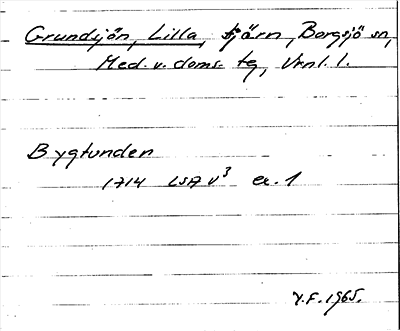 Grundsjön, Lilla, tjärn, Borgsjö sn,
Med. v. doms. tg, Vrnl. l.
Bygtunden
1714 LSA V³ ex. 1
V.F. 1965.